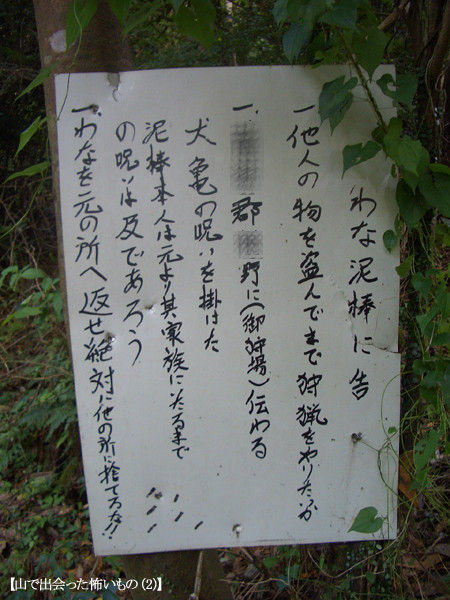 わな泥棒に告
一他人の物を盗んでまで狩猟をやりたいか
一、郡野に(御狩場)伝わる
犬亀の呪いを掛けた
泥棒本人は元より其家族にいたるまで
の呪いは及であろう
一、わなを元の所へ返せ絶対に他の所に捨てるな!!
【山で出会った怖いもの(2)】